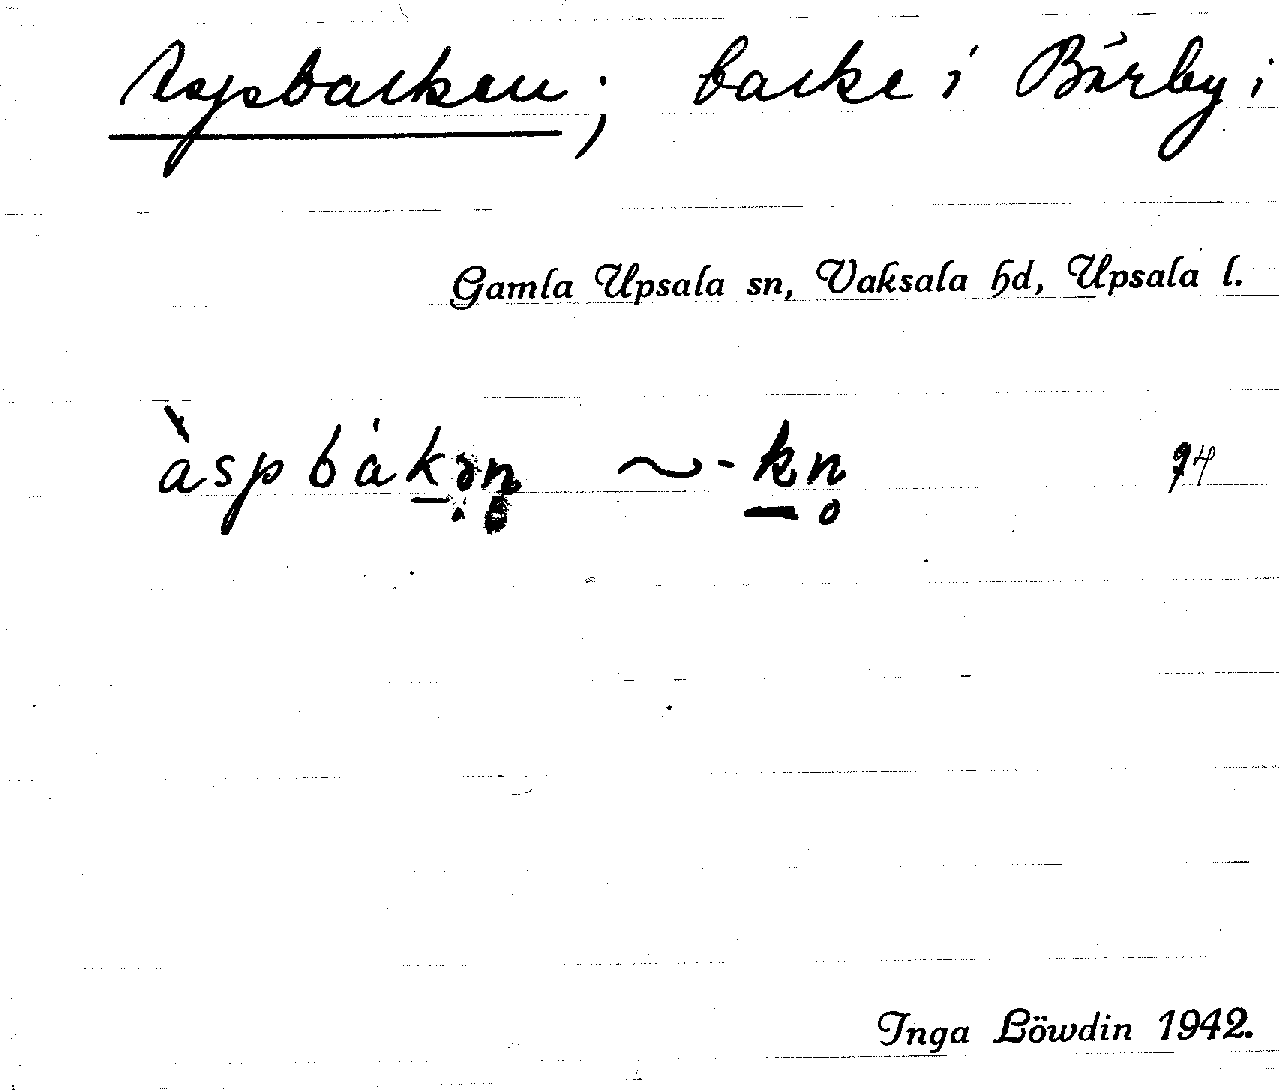 Aspbacken; backe i Bärby i
Gamla Upsala sn, Vaksala hd, Upsala l.
àspbákən ~ -kn̥ 74
Inga Löwdin 1942.